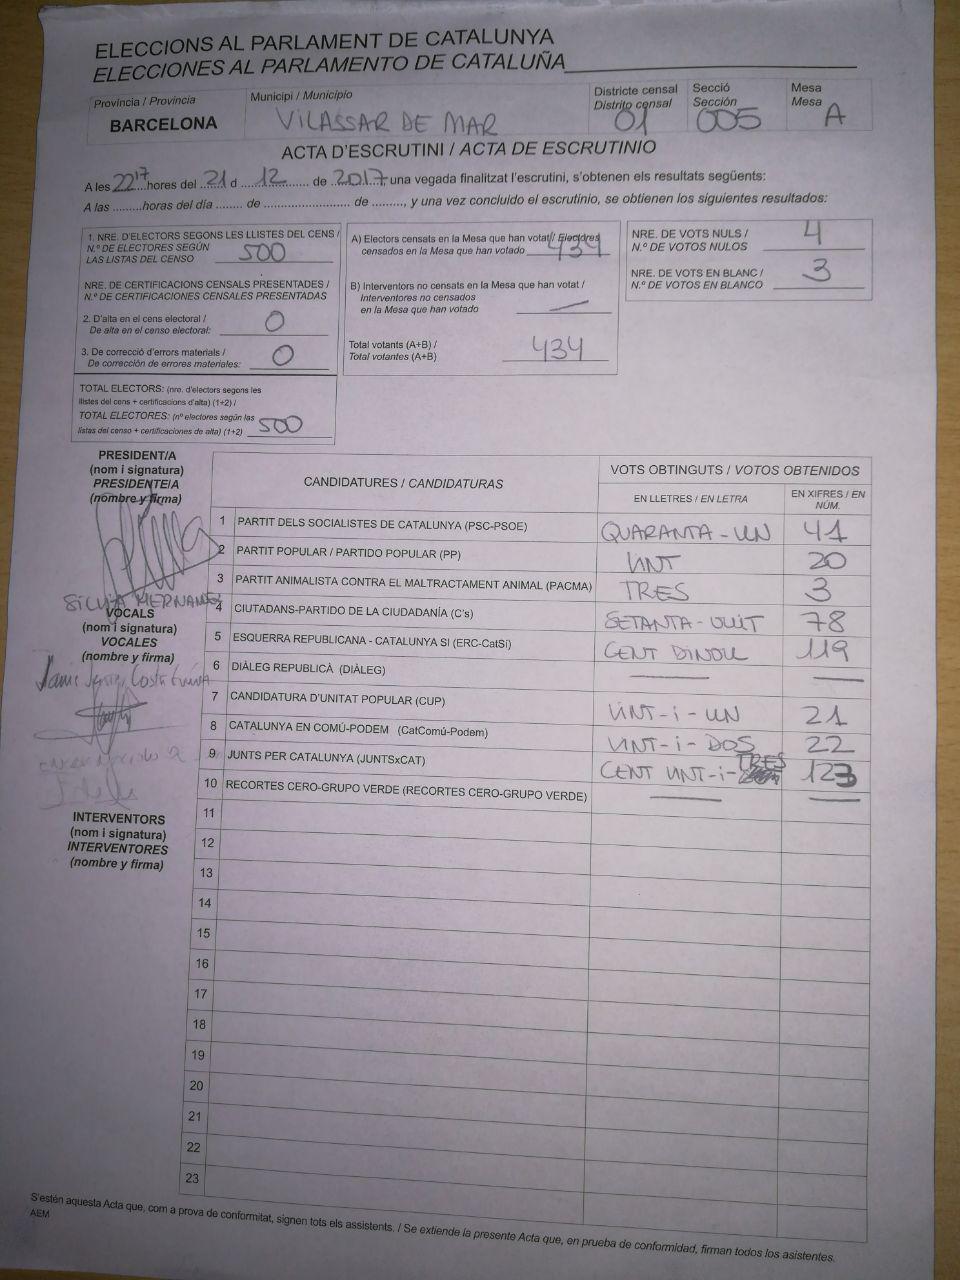 ELECCIONS AL PARLAMENT DE CATALUNYA
ELECCIONES AL PARLAMENTO DE CATALUÑA
Província / Provincia
BARCELONA
Municipi / Municipio
VILASSAR DE MAR
Districte censal
Distrito censal
01
Secció
Sección
005
Mesa
Mesa
A
ACTA D'ESCRUTINI / ACTA DE ESCRUTINIO
A les 22¹⁷ hores del 21 d 12 de 2017, una vegada finalitzat l'escrutini, s'obtenen els resultats següents:
A las .........horas del día ........ de ........................ de ........., y una vez concluido el escrutinio, se obtienen los siguientes resultados:
1. NRE. D'ELECTORS SEGONS LES LLISTES DEL CENS /
N.º DE ELECTORES SEGÚN
LAS LISTAS DEL CENSO 500
NRE. DE CERTIFICACIONS CENSALS PRESENTADES /
N.º DE CERTIFICACIONES CENSALES PRESENTADAS
2. D'alta en el cens electoral /
De alta en el censo electoral: 0
3. De correcció d'errors materials /
De corrección de errores materiales: 0
TOTAL ELECTORS: (nre. d'electors segons les
llistes del cens + certificacions d'alta) (1+2) /
TOTAL ELECTORES: (nº electores según las
listas del censo + certificaciones de alta) (1+2) 500
A) Electors censats en la Mesa que han votat / Electores
censados en la Mesa que han votado 434
B) Interventors no censats en la Mesa que han votat /
Interventores no censados
en la Mesa que han votado —
Total votants (A+B) /
Total votantes (A+B) 434
NRE. DE VOTS NULS /
N.º DE VOTOS NULOS 4
NRE. DE VOTS EN BLANC /
N.º DE VOTOS EN BLANCO 3
PRESIDENT/A
(nom i signatura)
PRESIDENTE/A
(nombre y firma)
SILVIA HERNANDEZ
VOCALS
(nom i signatura)
VOCALES
(nombre y firma)
INTERVENTORS
(nom i signatura)
INTERVENTORES
(nombre y firma)
CANDIDATURES / CANDIDATURAS
VOTS OBTINGUTS / VOTOS OBTENIDOS
EN LLETRES / EN LETRA
EN XIFRES / EN NÚM.
1 PARTIT DELS SOCIALISTES DE CATALUNYA (PSC-PSOE) QUARANTA-UN 41
2 PARTIT POPULAR / PARTIDO POPULAR (PP) VINT 20
3 PARTIT ANIMALISTA CONTRA EL MALTRACTAMENT ANIMAL (PACMA) TRES 3
4 CIUTADANS-PARTIDO DE LA CIUDADANÍA (C's) SETANTA-VUIT 78
5 ESQUERRA REPUBLICANA - CATALUNYA SI (ERC-CatSí) CENT DINOU 119
6 DIÀLEG REPUBLICÀ (DIÀLEG) — —
7 CANDIDATURA D'UNITAT POPULAR (CUP) VINT-i-UN 21
8 CATALUNYA EN COMÚ-PODEM (CatComú-Podem) VINT-i-DOS 22
9 JUNTS PER CATALUNYA (JUNTSxCAT) CENT VINT-i-TRES 123
10 RECORTES CERO-GRUPO VERDE (RECORTES CERO-GRUPO VERDE) — —
11
12
13
14
15
16
17
18
19
20
21
22
23
S'estén aquesta Acta que, com a prova de conformitat, signen tots els assistents. / Se extiende la presente Acta que, en prueba de conformidad, firman todos los asistentes.
AEM